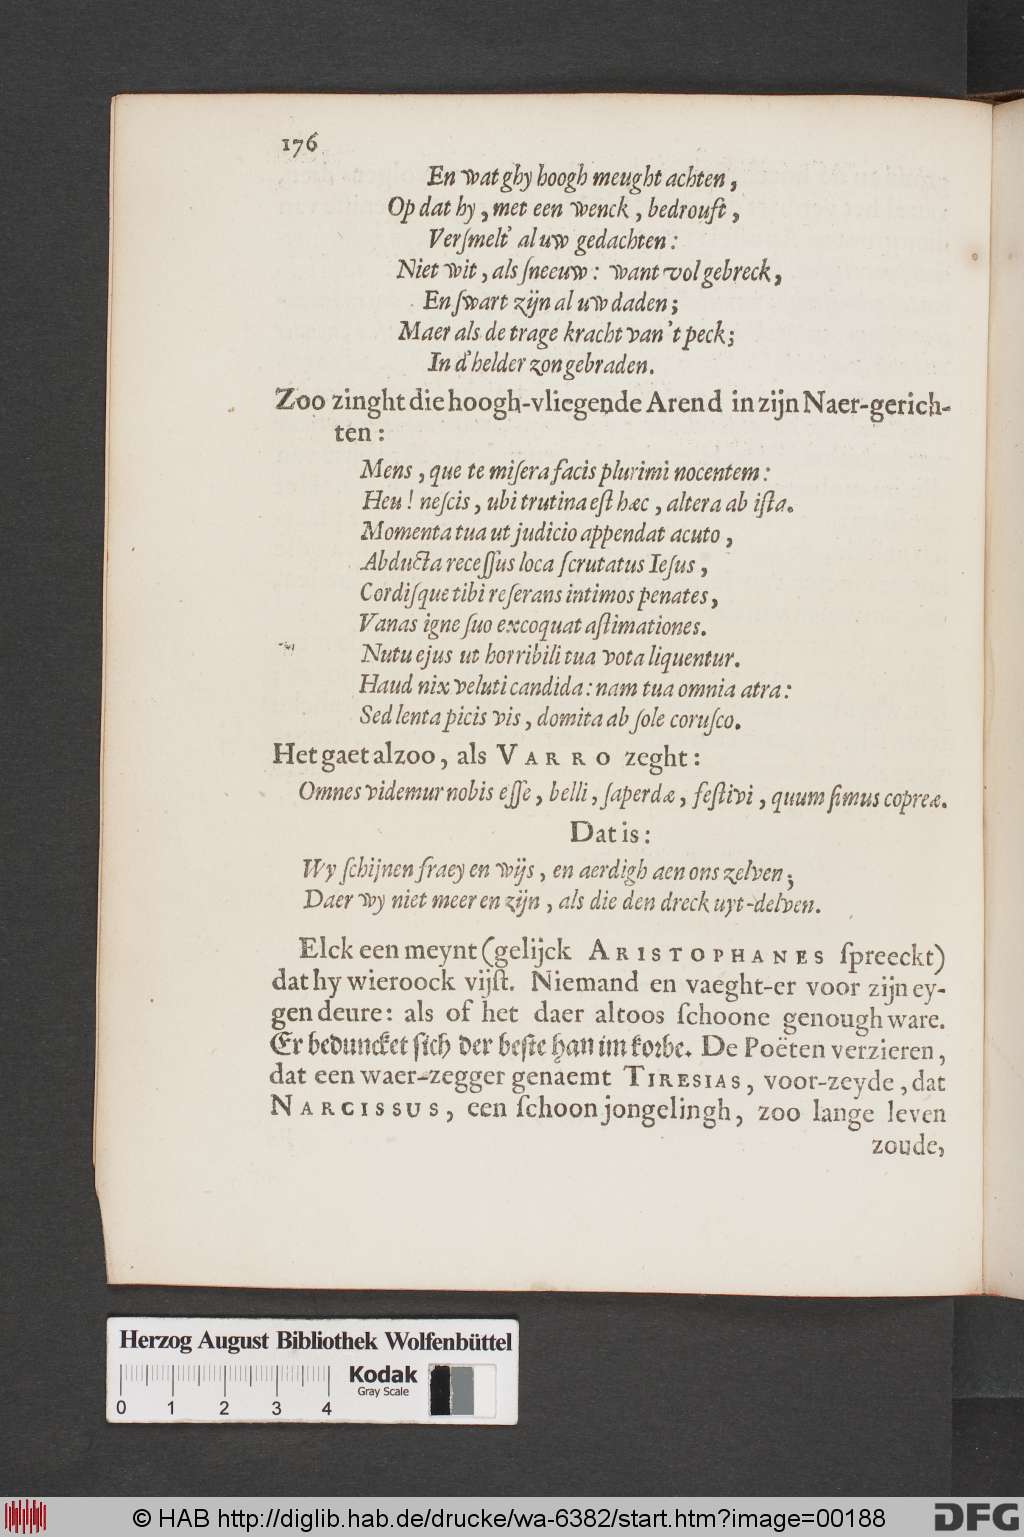 176
En wat ghy hoogh meught achten,
Op dat hy, met een wenck, bedrouft,
Verſmelt' al uw gedachten:
Niet wit, als ſneeuw: want vol gebreck,
En ſwart zijn al uw daden;
Maer als de trage kracht van 't peck;
In d'helder zon gebraden.
Zoo zinght die hoogh-vliegende Arend in zijn Naer-gerich-
ten:
Mens, que te miſera facis plurimi nocentem:
Heu! neſcis, ubi trutina eſt hæc, altera ab iſta.
Momenta tua ut judicio appendat acuto,
Abducta receſſus loca ſcrutatus Ieſus,
Cordiſque tibi reſerans intimos penates,
Vanas igne ſuo excoquat aſtimationes.
Nutu ejus ut horribili tua vota liquentur.
Haud nix veluti candida: nam tua omnia atra:
Sed lenta picis vis, domita ab ſole coruſco.
Het gaet alzoo, als VARRO zeght:
Omnes videmur nobis eſſe, belli, ſaperdæ, feſtivi, quum ſimus copreæ.
Dat is:
Wy ſchijnen fraey en wijs, en aerdigh aen ons zelven;
Daer wy niet meer en zijn, als die den dreck uyt-delven.
Elck een meynt (gelijck ARISTOPHANES ſpreeckt)
dat hy wieroock vijſt. Niemand en vaeght-er voor zijn ey-
gen deure: als of het daer altoos ſchoone genough ware.
Er beduncket ſich der beſte han im korbe. De Poëten verzieren,
dat een waer-zegger genaemt TIRESIAS, voor-zeyde, dat
NARCISSUS, een ſchoon jongelingh, zoo lange leven
zoude,
Herzog August Bibliothek Wolfenbüttel
Kodak
Gray Scale
0 1 2 3 4
© HAB http://diglib.hab.de/drucke/wa-6382/start.htm?image=00188
DFG